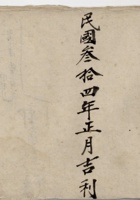 民國叁拾四年正月吉利